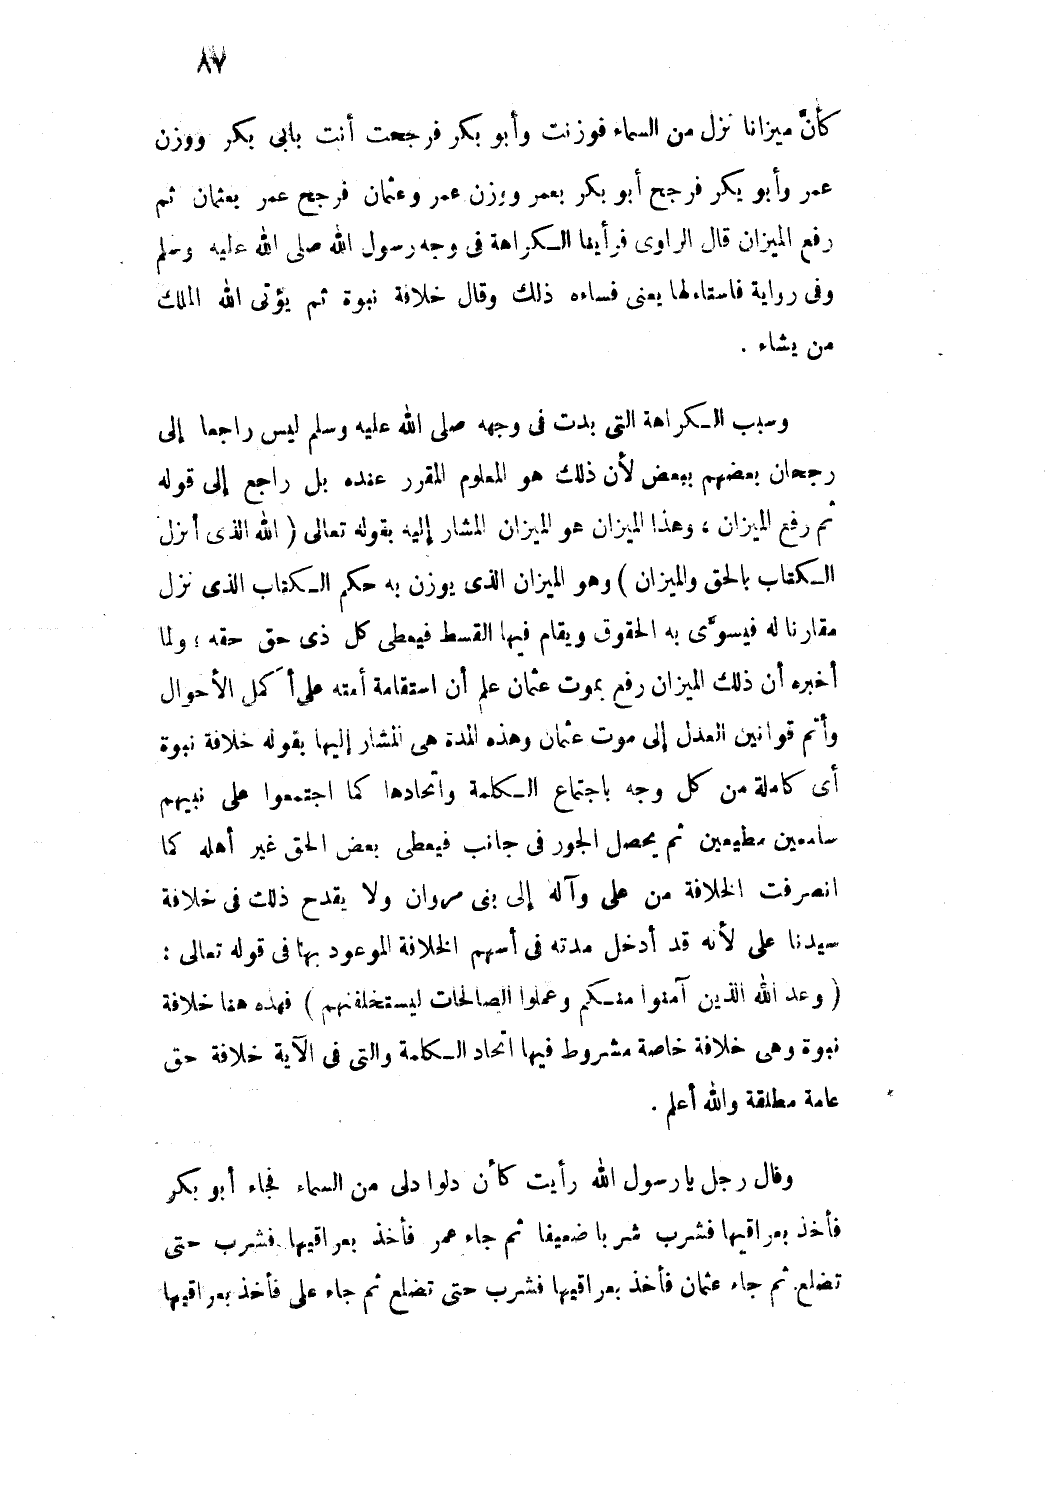 ٨٧
كأنّ ميزانا نزل من السماء فوزنت وأبو بكر فرجحت أنت بابى بكر ووزن
عمر وأبو بكر فرجح أبو بكر بعمر ووزن عمر وعثمان فرجح عمر بعثمان ثم
رفع الميزان قال الراوى فرأينا الكراهة فى وجه رسول الله صلى الله عليه وسلم
وفى رواية فاستاء لها يعنى فساءه ذلك وقال خلافة نبوة ثم يؤتى الله الملك
من يشاء .
وسبب الكراهة التى بدت فى وجهه صلى الله عليه وسلم ليس راجعا إلى
رجحان بعضهم ببعض لأن ذلك هو المعلوم المقرر عنده بل راجع إلى قوله
ثم رفع الميزان ، وهذا الميزان هو الميزان المشار إليه بقوله تعالى ( الله الذى أنزل
الكتاب بالحق والميزان ) وهو الميزان الذى يوزن به حكم الكتاب الذى نزل
مقارنا له فيسوّى به الحقوق ويقام فيها القسط فيعطى كل ذى حق حقه ؛ ولما
أخبره أن ذلك الميزان رفع بموت عثمان علم أن استقامة أمته على أكمل الأحوال
وأتم قوانين العدل إلى موت عثمان وهذه المدة هى المشار إليها بقوله خلافة نبوة
أى كاملة من كل وجه باجتماع الكلمة واتحادها كما اجتمعوا على نبيهم
سامعين مطيعين ثم يحصل الجور فى جانب فيعطى بعض الحق غير أهله كما
انصرفت الخلافة من على وآله إلى بنى مروان ولا يقدح ذلك فى خلافة
سيدنا على لأنه قد أدخل مدته فى أسهم الخلافة الموعود بها فى قوله تعالى :
( وعد الله الذين آمنوا منكم وعملوا الصالحات ليستخلفنهم ) فهذه هنا خلافة
نبوة وهى خلافة خاصة مشروط فيها اتحاد الكلمة والتى فى الآية خلافة حق
عامة مطلقة والله أعلم .
وقال رجل يارسول الله رأيت كأن دلوا دلى من السماء فجاء أبو بكر
فأخذ بعراقيها فشرب شربا ضعيفا ثم جاء عمر فأخذ بعراقيها فشرب حتى
تضلع ثم جاء عثمان فأخذ بعراقيها فشرب حتى تضلع ثم جاء على فأخذ بعراقيها